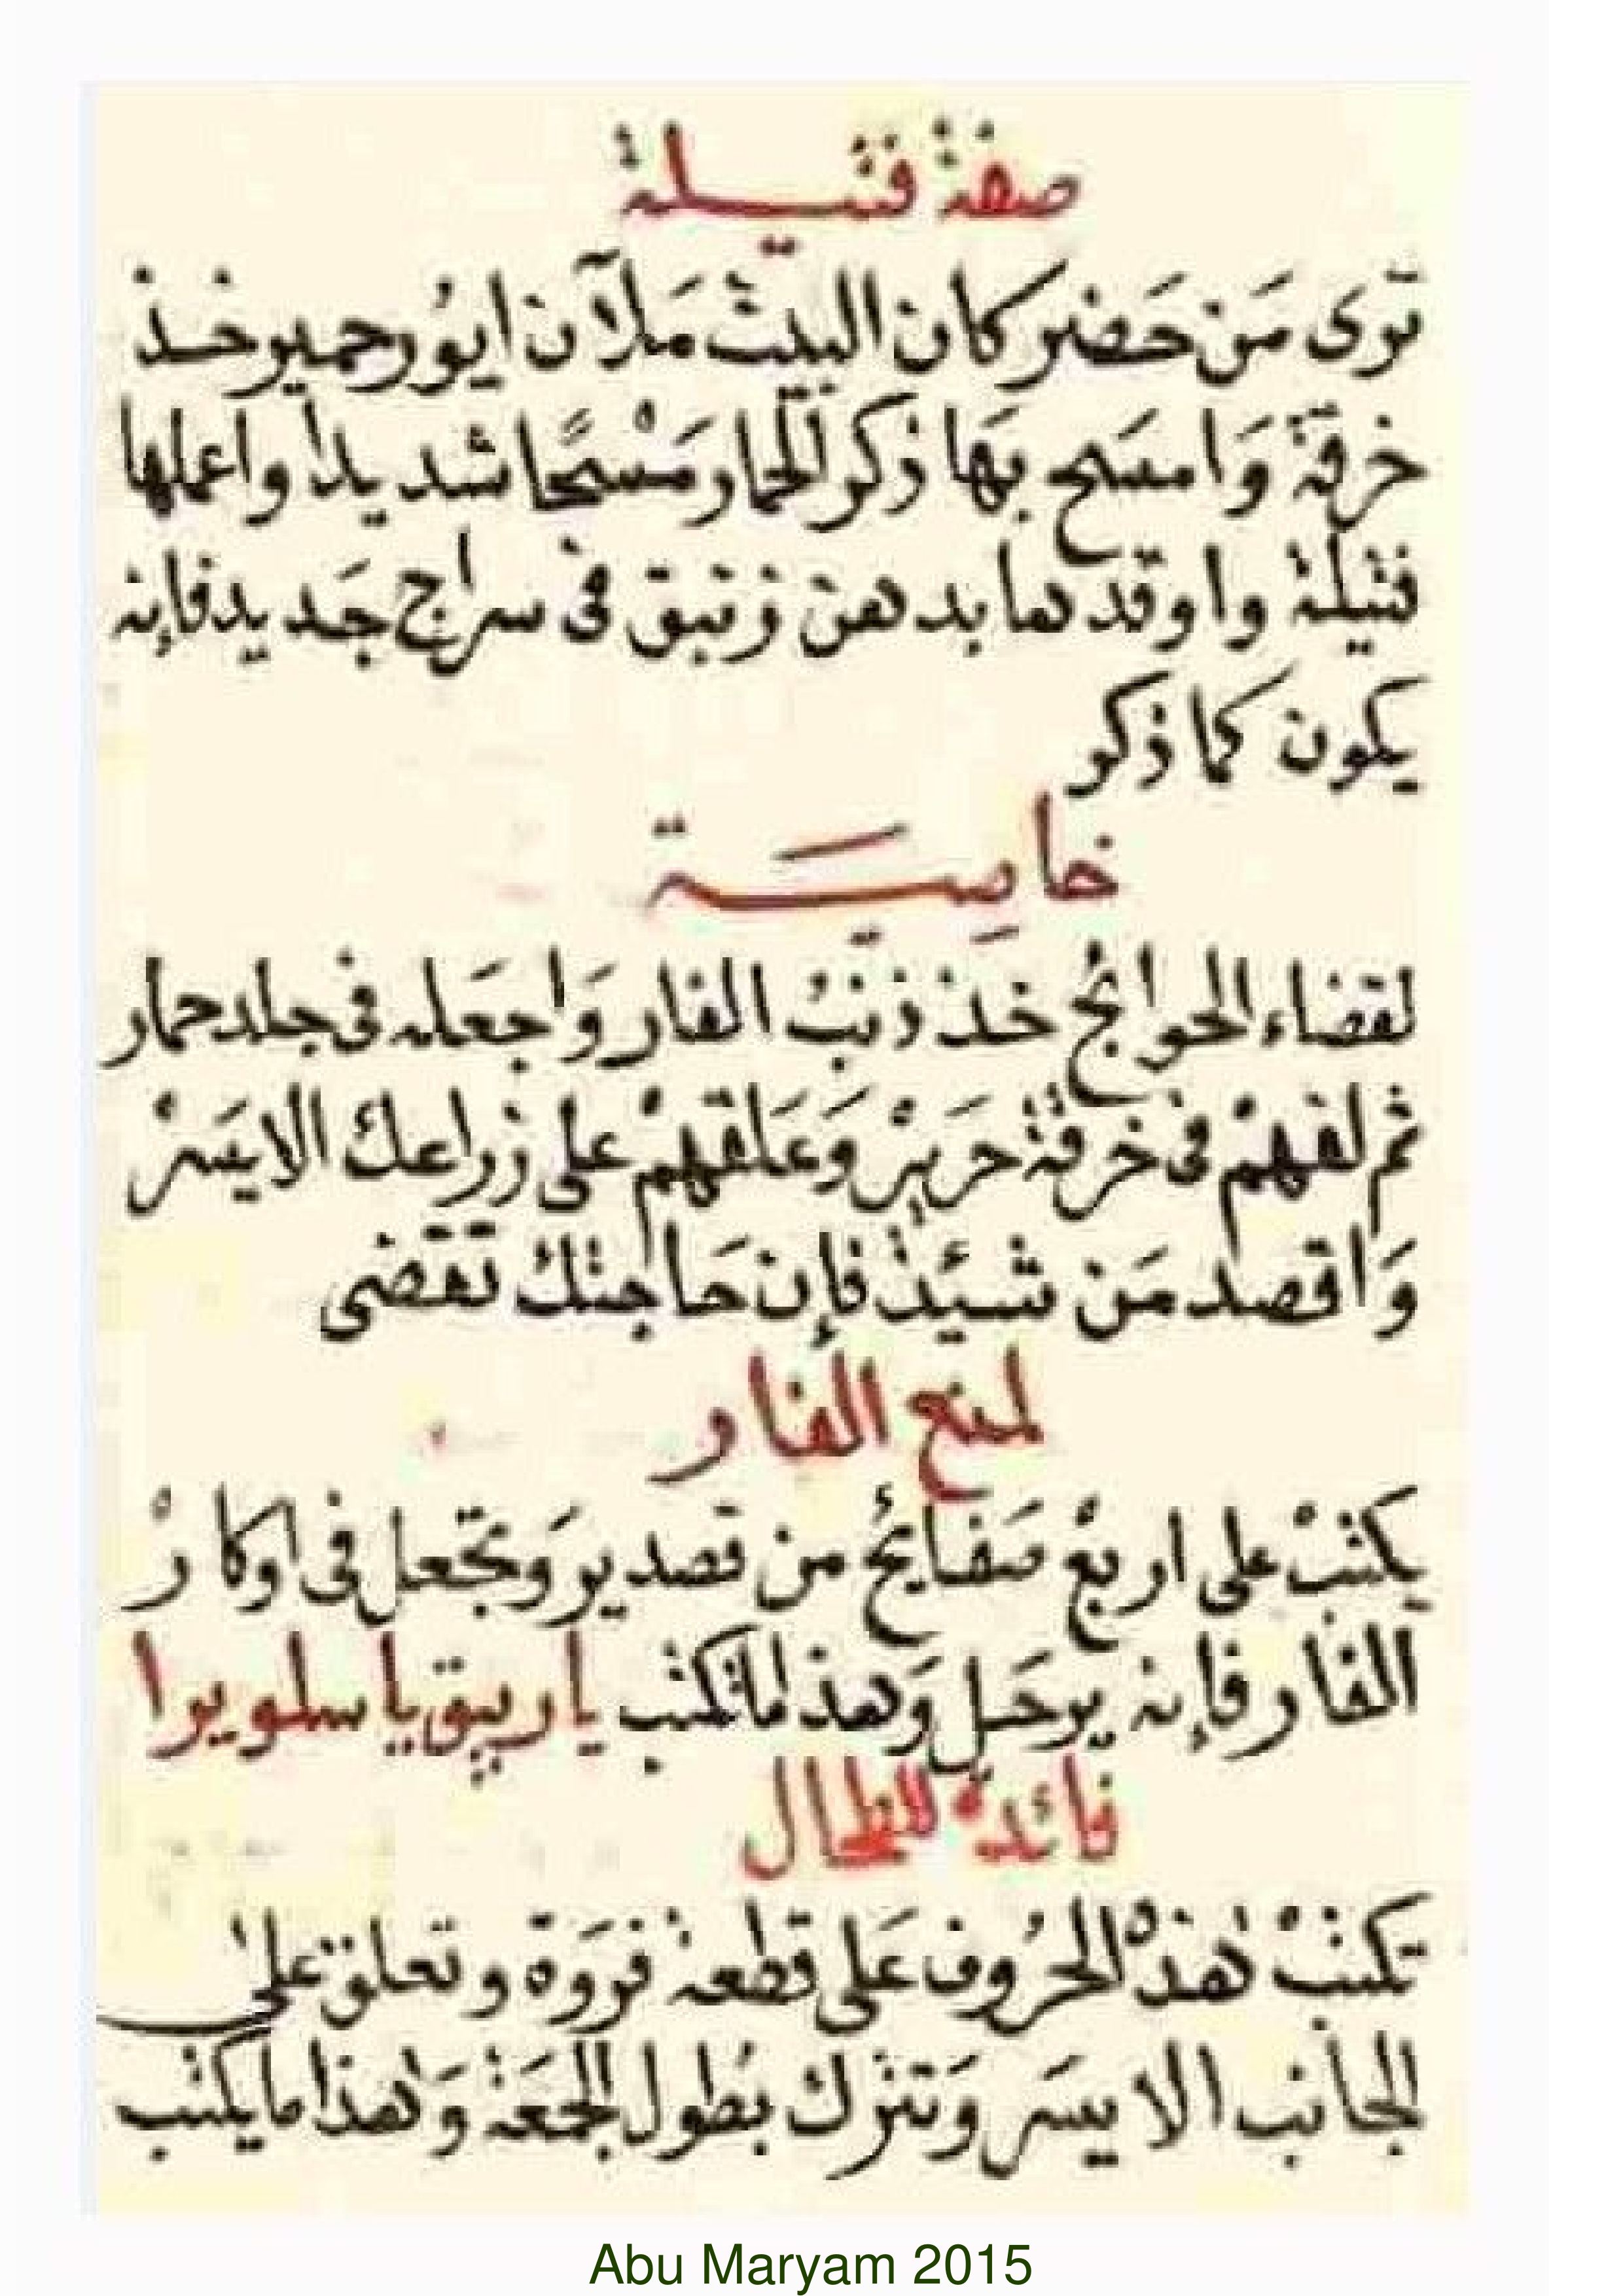 صفة فتيلة
ترى مَن حَضر كان البيت مَلآن ايُور حمير خذ
خرقة وَامسَح بهَا ذكر الحمار مَسْحًا شديداً واعملها
فتيلة واوقدها بدهن زنبق فى سراج جَديد فإنه
يكون كما ذكر
خاصِيَّة
لقضاء الحوائج خذ ذنبُ الفار وَاجعَله فى جلد حمار
ثم لفهمْ فى خرقة حَريرْ وَعَلقهمْ على زراعك الايسَرْ
وَاقصد مَن شئت فإن حَاجتك تقضى
لمنع الفار
يكتبْ على اربعْ صَفايحُ من قصدير وَتجعل فى اوكارْ
الفار فإنه يرحَل وَهذا ما تكتب ياربيق يا سلويرا
فائدة للطحال
تكتبْ هذه الحُروف عَلى قطعة فروَة وتعلق على
الجانب الايسَر وَتترك بُطول الجمَعة وَهذا ما يكتب
Abu Maryam 2015